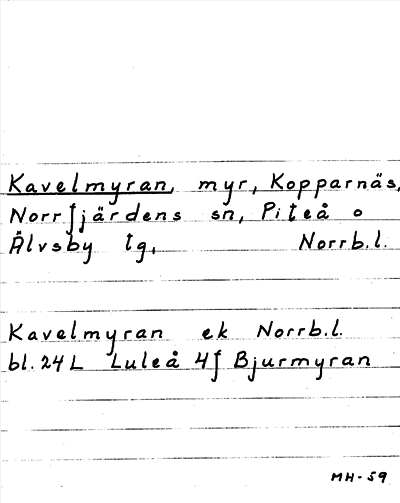 Kavelmyran, myr, Kopparnäs,
Norrfjärdens sn, Piteå o
Älvsby tg, Norrb.l.
Kavelmyran ek Norrb.l.
bl. 24 L Luleå 4f Bjurmyran
MH-59